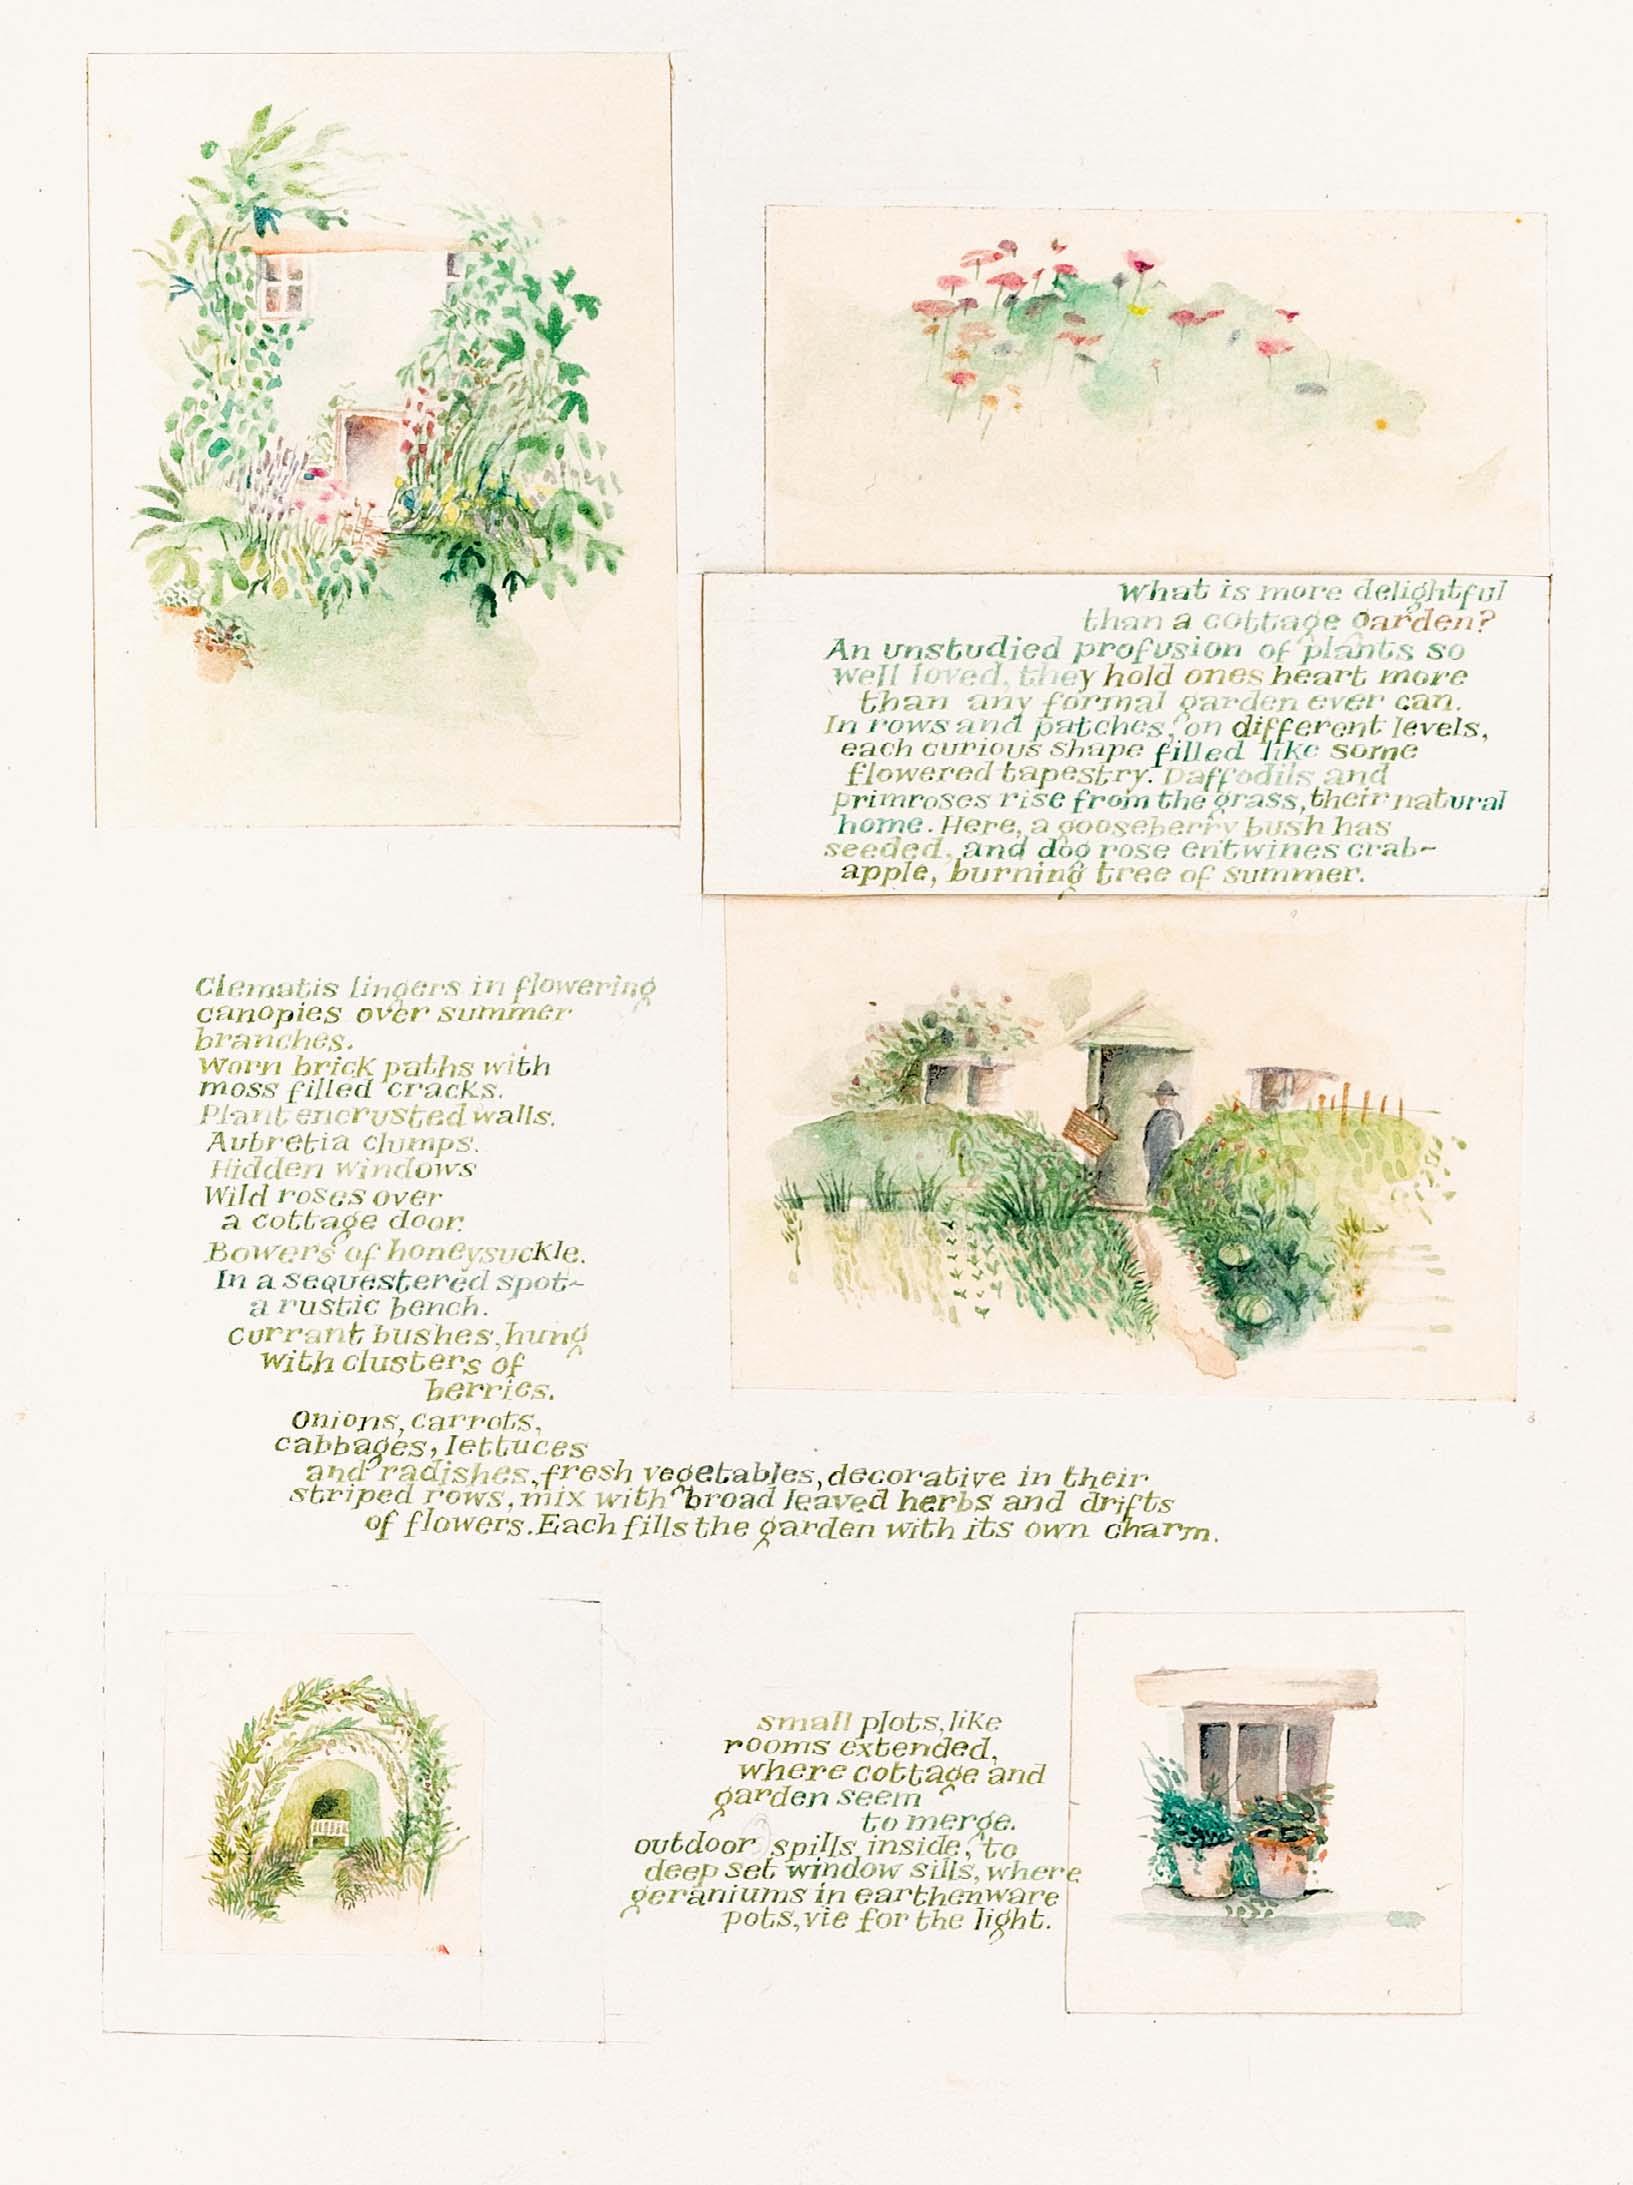 What is more delightful
than a cottage garden?
An unstudied profusion of plants so
well loved, they hold ones heart more
than any formal garden ever can.
In rows and patches, on different levels,
each curious shape filled like some
flowered tapestry. Daffodils and
primroses rise from the grass, their natural
home. Here, a gooseberry bush has
seeded, and dog rose entwines crab-
apple, burning tree of summer.
Clematis lingers in flowering
canopies over summer
branches.
Worn brick paths with
moss filled cracks.
Plant encrusted walls.
Aubretia clumps.
Hidden windows
Wild roses over
a cottage door.
Bowers of honeysuckle.
In a sequestered spot-
a rustic bench.
Currant bushes, hung
with clusters of
berries.
Onions, carrots,
cabbages, lettuces
and radishes, fresh vegetables, decorative in their
striped rows, mix with broad leaved herbs and drifts
of flowers. Each fills the garden with its own charm.
small plots, like
rooms extended,
where cottage and
garden seem
to merge.
outdoor spills inside, to
deep set window sills, where
geraniums in earthenware
pots, vie for the light.